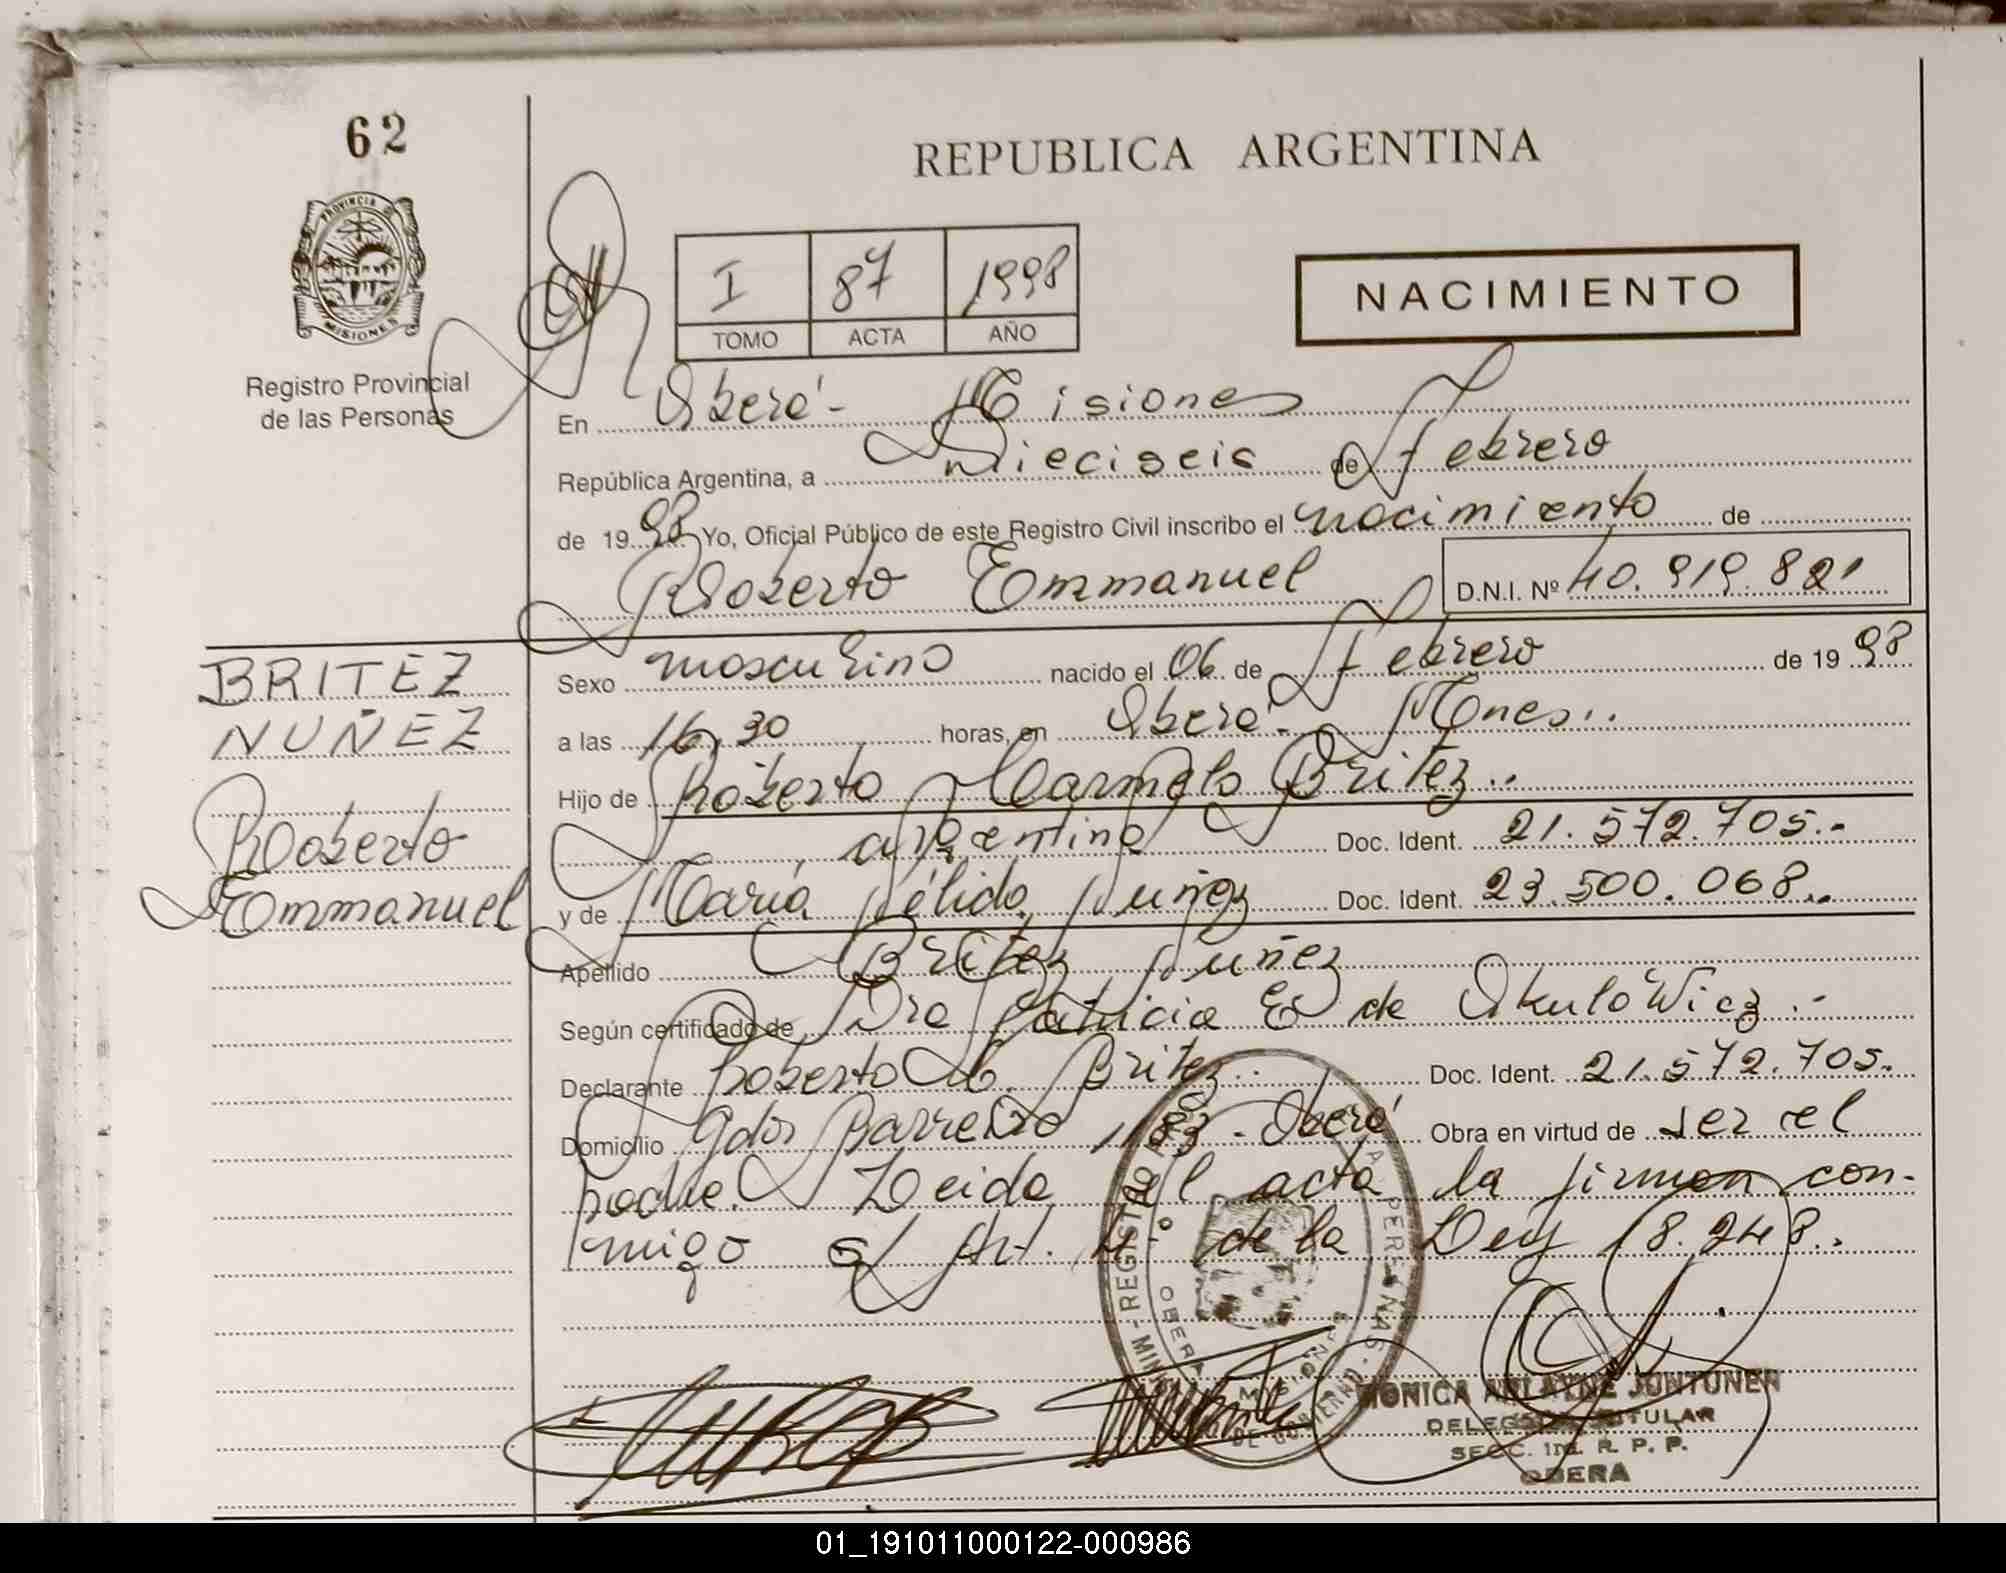 62
REPUBLICA ARGENTINA
PROVINCIA DE
MISIONES
Registro Provincial
de las Personas
I 87 1998
TOMO ACTA AÑO
NACIMIENTO
En Oberá - Misiones
República Argentina, a Dieciseis de Febrero
de 1998 Yo, Oficial Público de este Registro Civil inscribo el nacimiento de
Roberto Emmanuel D.N.I. Nº 40.919.821
BRITEZ
NUÑEZ
Roberto
Emmanuel
Sexo masculino nacido el 06 de Febrero de 1998
a las 16,30 horas, en Oberá - Mnes..
Hijo de Roberto Carmelo Britez..
argentino Doc. Ident. 21.572.705.-
y de María Nélida Nuñez Doc. Ident. 23.500.068..
Apellido Britez Nuñez
Según certificado de Dra Patricia E de Okulówicz.-
Declarante Roberto C. Britez.. Doc. Ident. 21.572.705.
Domicilio Gdor Barreiro 1183 - Oberá Obra en virtud de ser el
padre. Leida el acta la firman con-
migo s/ Art. 4º de la Ley 18.248..
REGISTRO PERSONAS
OBERA
MISIONES
DE GOBIERNO
MONICA JUNTUNEN
TITULAR
SECC. 1ra. R. P. P.
OBERA
01_191011000122-000986